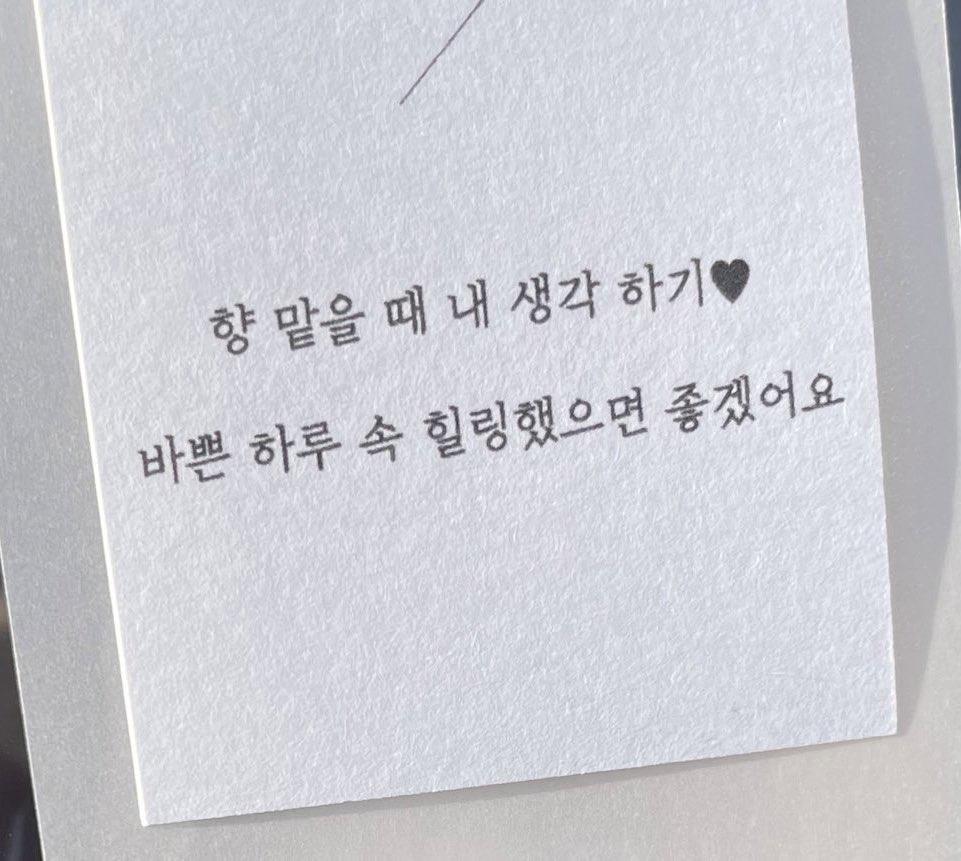 향 맡을 때 내 생각 하기♥
바쁜 하루 속 힐링했으면 좋겠어요